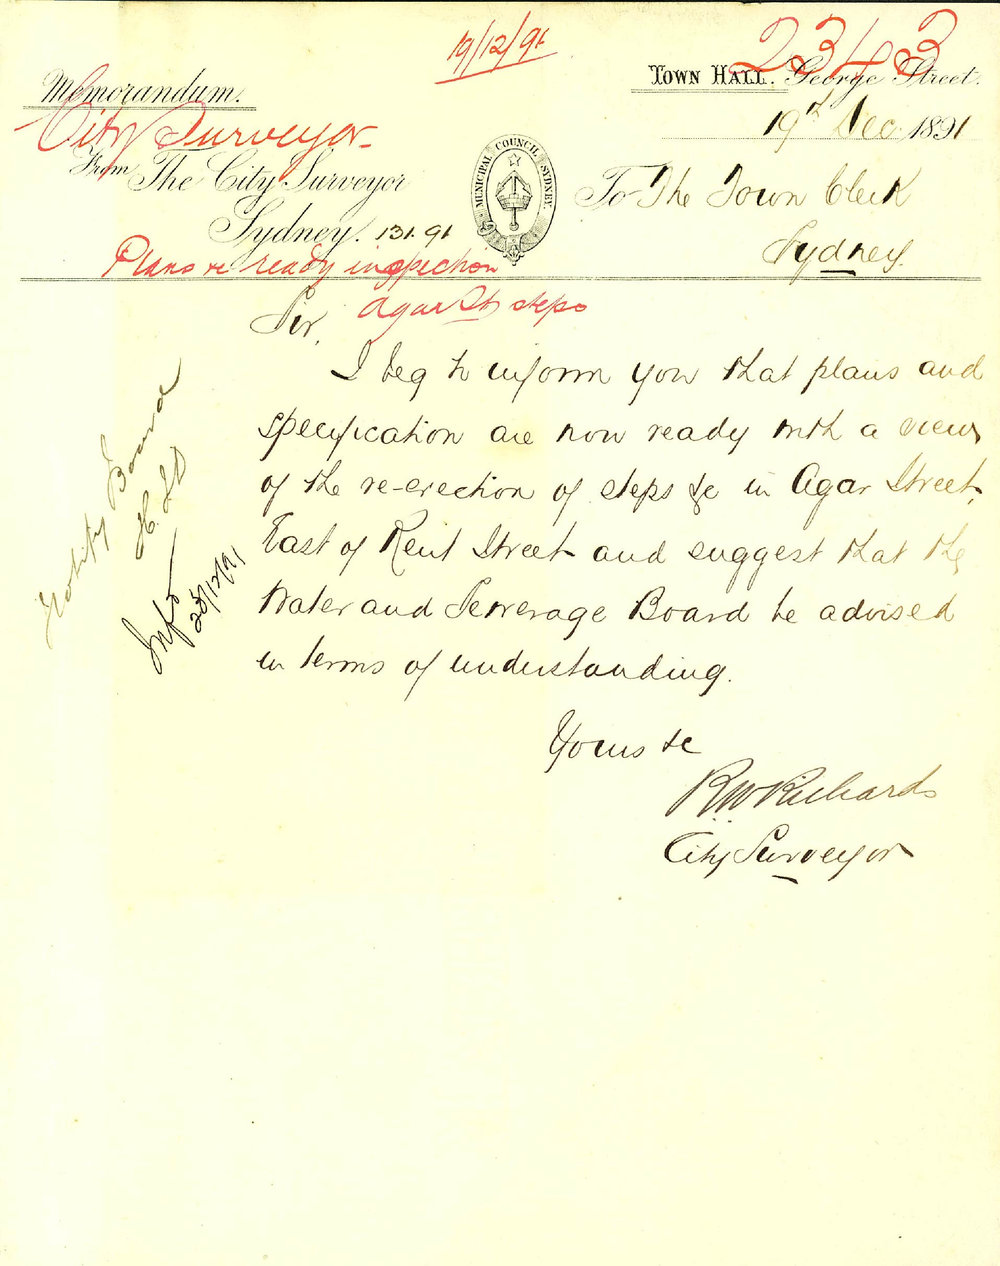 19/12/91
2343
Town Hall. George Street.
Memorandum.
City Surveyor
19th Dec. 1891
From The City Surveyor
MUNICIPAL COUNCIL SYDNEY.
To The Town Clerk
Sydney. 131.91
Sydney.
Plans re ready inspection
Agar St steps
Sir,
I beg to inform you that plans and
specification are now ready with a view
of the re-erection of steps &c in Agar Street,
East of Kent Street and suggest that the
Water and Sewerage Board be advised
in terms of understanding.
Yours &c
R W Richards
City Surveyor
Notify Board
Infd
23/12/91